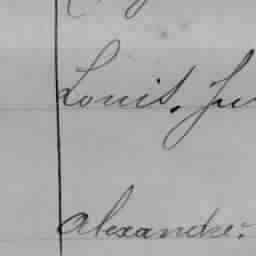 Louis. Ju
Alexandre.